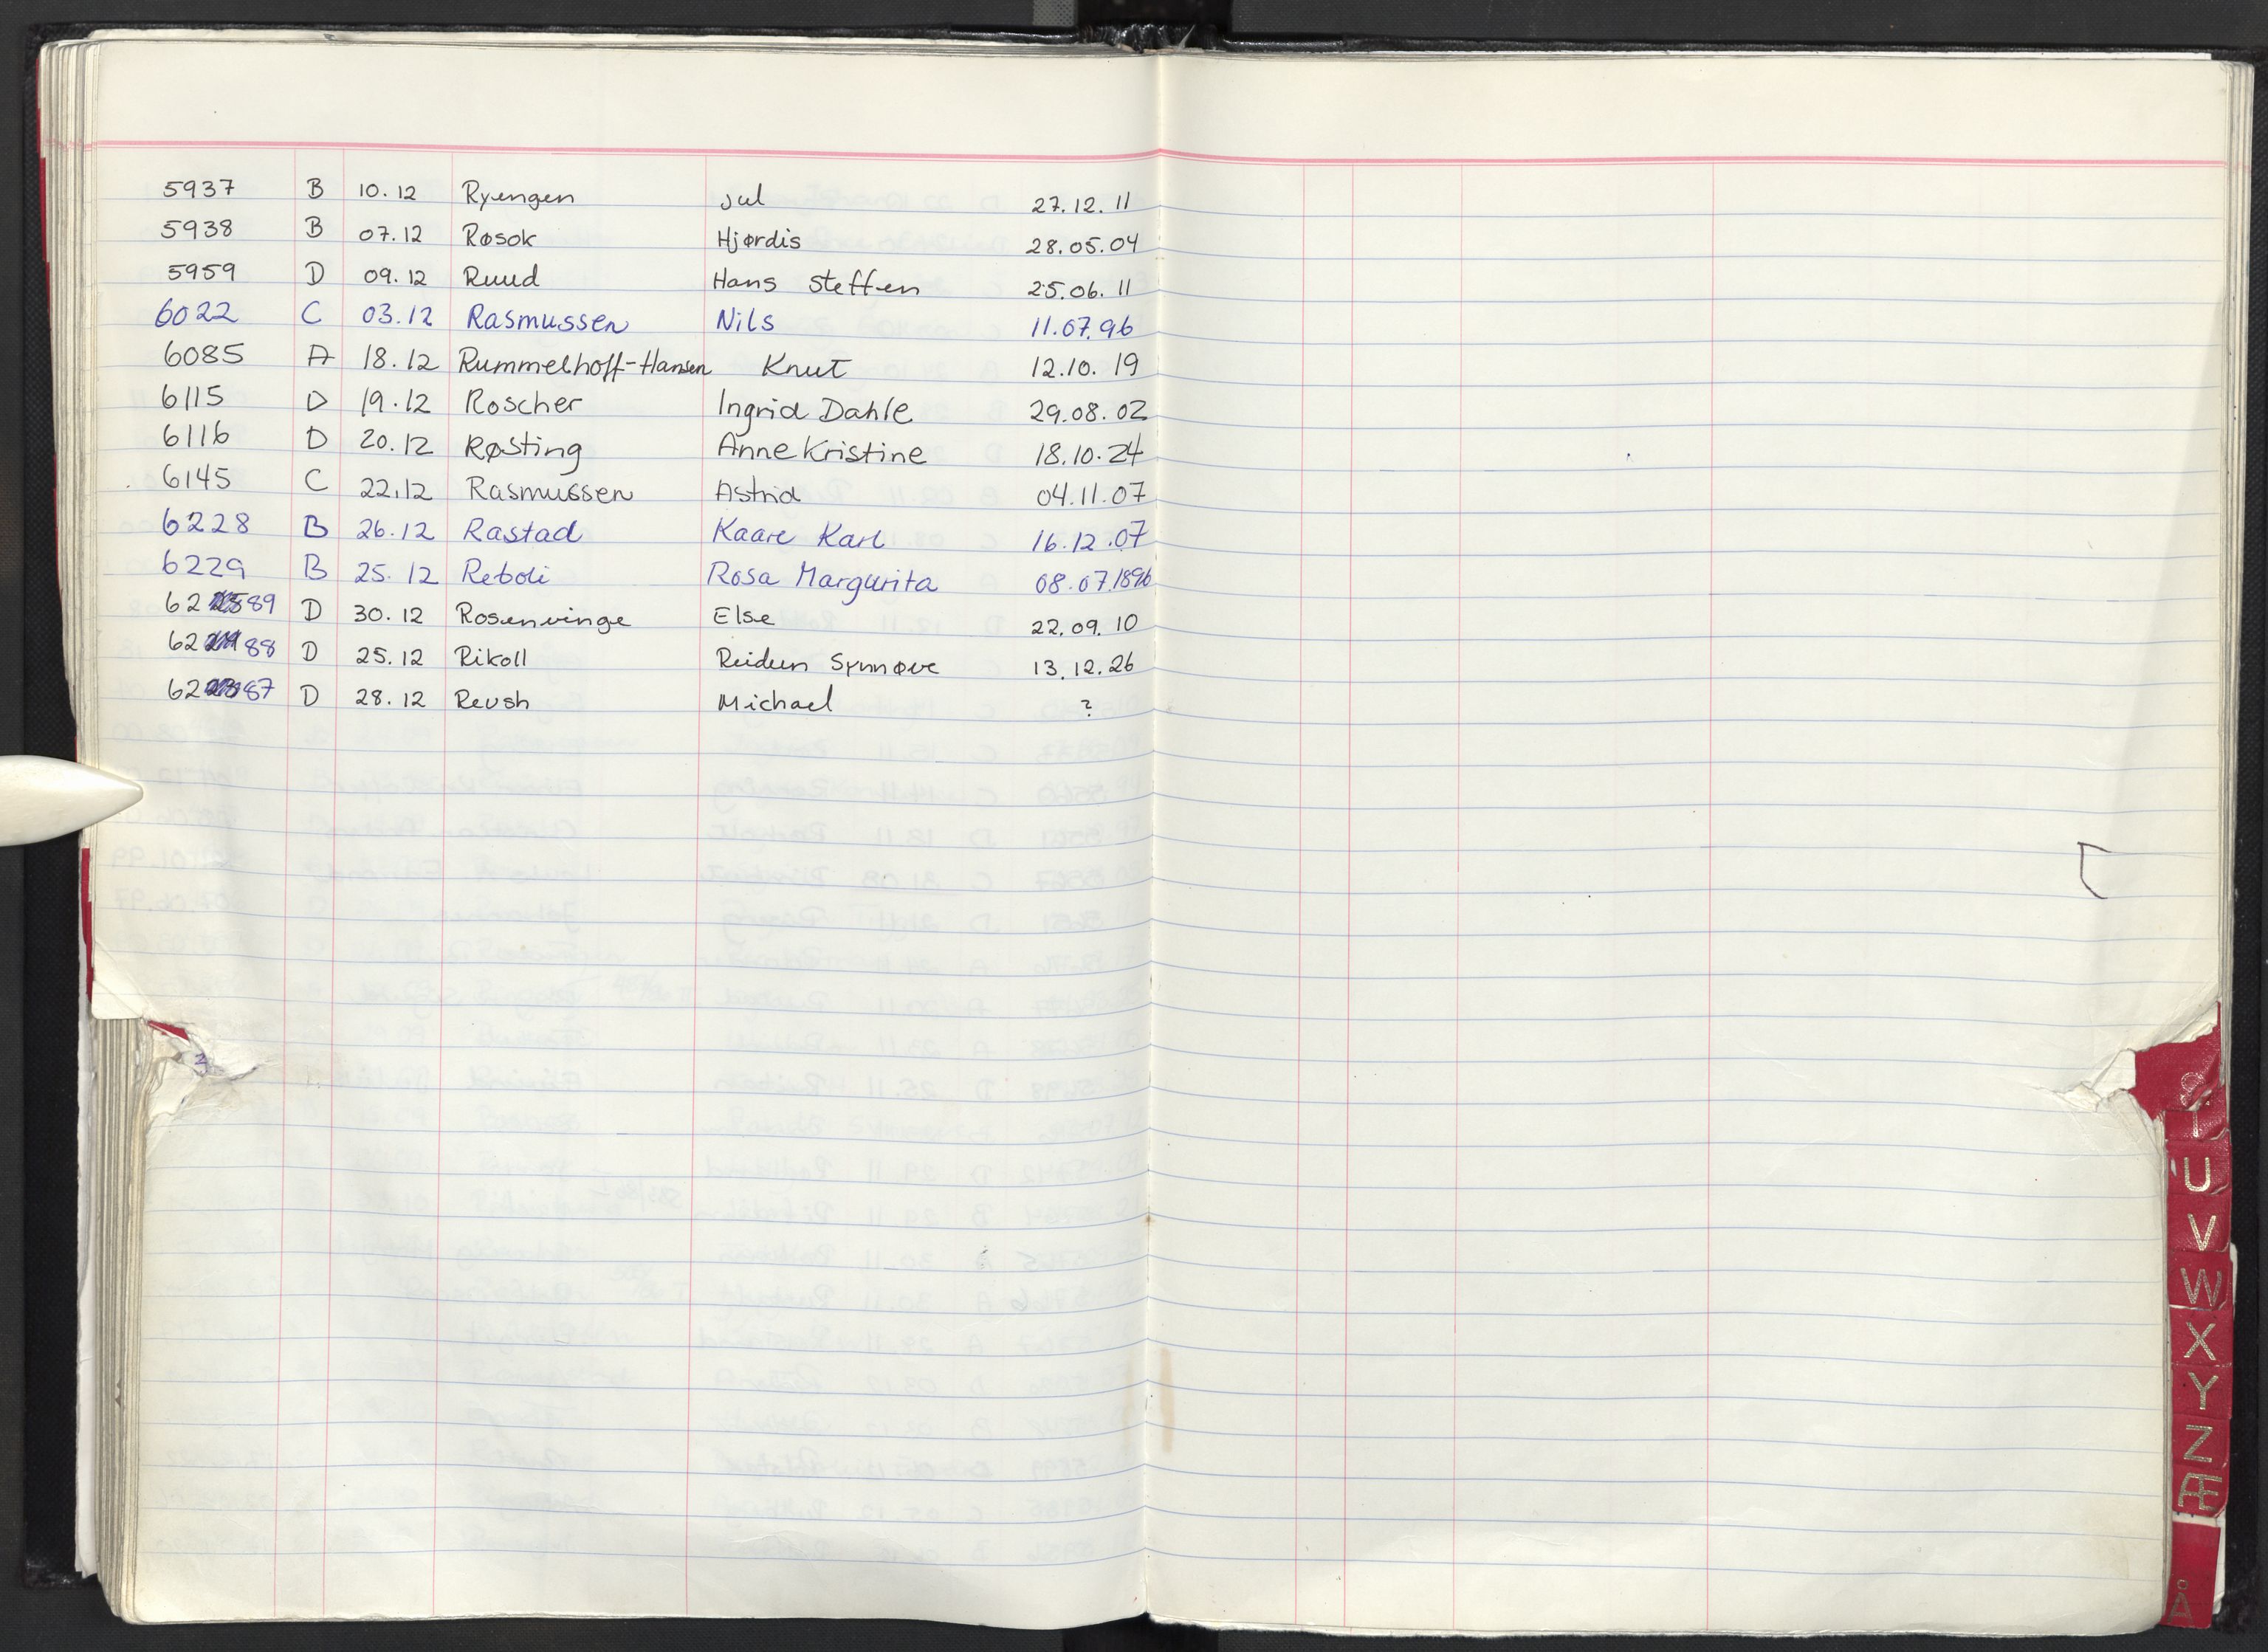 5937 B 10.12 Ryengen Jul 27.12.11
5938 B 07.12 Røsok Hjørdis 28.05.04
5959 D 09.12 Ruud Hans Steffen 25.06.11
6022 C 03.12 Rasmussen Nils 11.07.96
6085 A 18.12 Rummelhoff-Hansen Knut 12.10.19
6115 D 19.12 Roscher Ingrid Dahle 29.08.02
6116 D 20.12 Røsting Anne Kristine 18.10.24
6145 C 22.12 Rasmussen Astrid 04.11.07
6228 B 26.12 Rastad Kaare Karl 16.12.07
6229 B 25.12 Reboli Rosa Margarita 08.07.1896
6289 D 30.12 Rosenvinge Else 22.09.10
6288 D 25.12 Rikoll Reidun Synnøve 13.12.26
6287 D 28.12 Reush Michael ?
U
V
W
X
Y
Z
Æ
Å